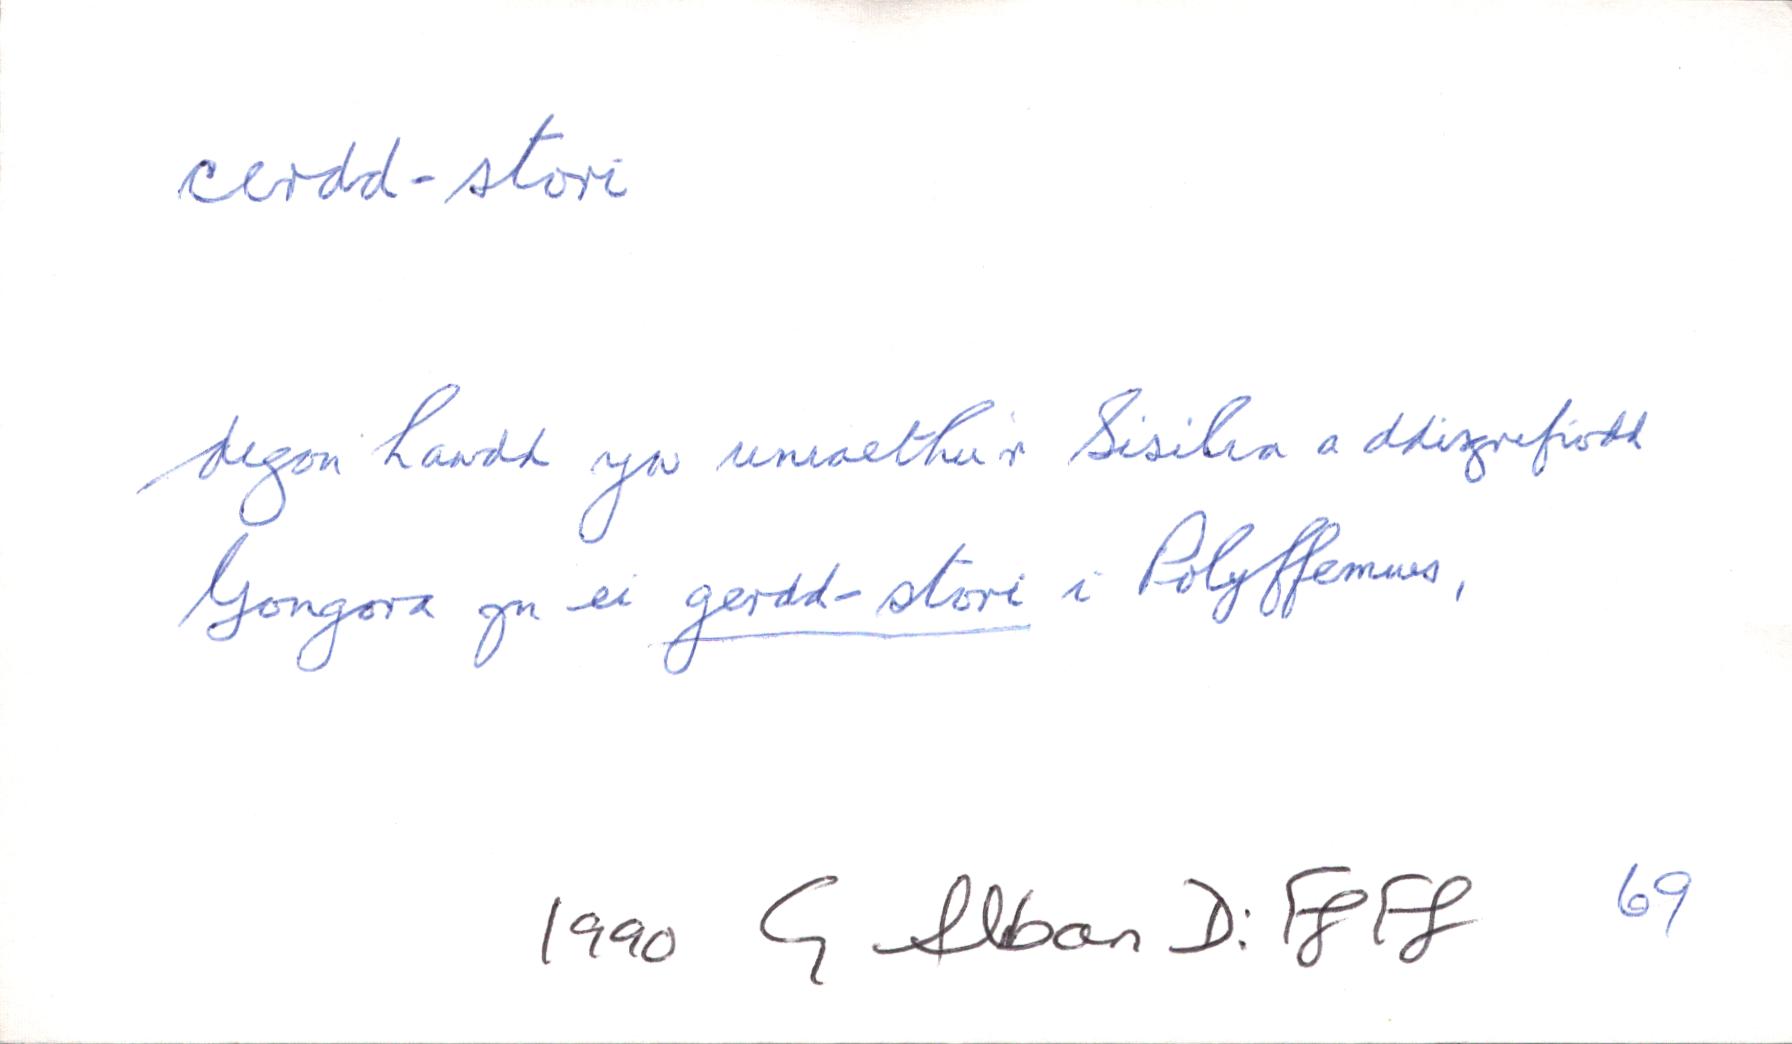 cerdd-stori
degon hawdd yw uniaethu'r Sisilia a ddisgrefiodd
Gongora yn ei gerdd-stori i Polyffemws,
1990 G Alban D: FfFf 69